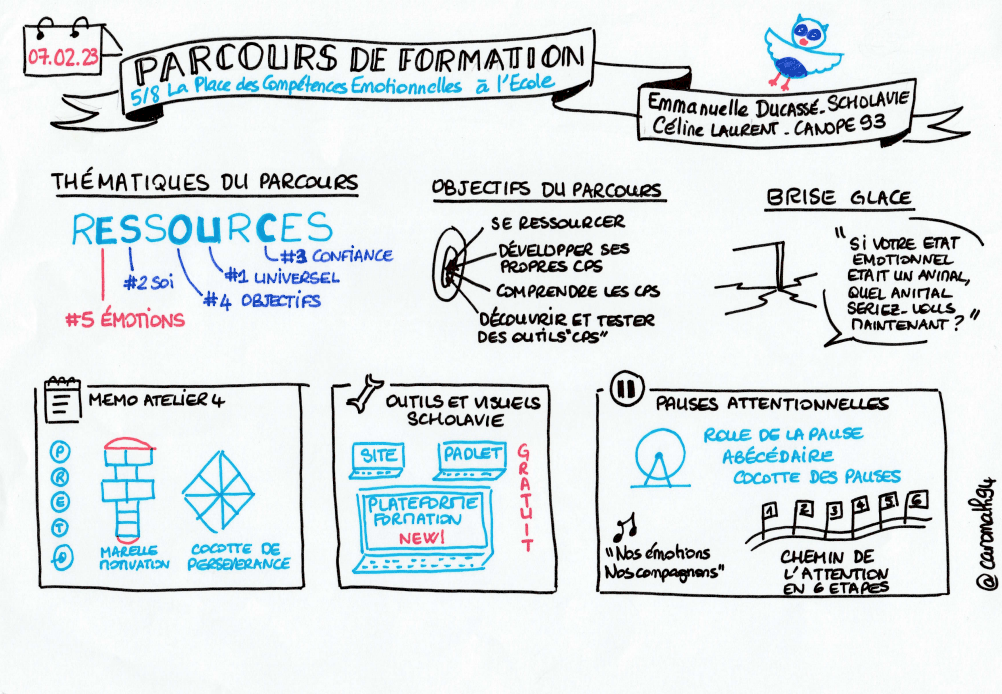 07.02.23
PARCOURS DE FORMATION
5/8 La Place des Compétences Emotionnelles à l'Ecole
Emmanuelle DUCASSÉ - SCHOLAVIE
Céline LAURENT - CANOPE 93
THÉMATIQUES DU PARCOURS
RESSOURCES
#3 CONFIANCE
#1 UNIVERSEL
#2 SOI
#4 OBJECTIFS
#5 ÉMOTIONS
OBJECTIFS DU PARCOURS
SE RESSOURCER
DÉVELOPPER SES
PROPRES CPS
COMPRENDRE LES CPS
DÉCOUVRIR ET TESTER
DES OUTILS "CPS"
BRISE GLACE
"SI VOTRE ETAT
EMOTIONNEL
ETAIT UN ANIMAL,
QUEL ANIMAL
SERIEZ-VOUS
MAINTENANT ?"
MEMO ATELIER 4
P
R
E
T
MARELLE
MOTIVATION
COCOTTE DE
PERSEVERANCE
OUTILS ET VISUELS
SCHOLAVIE
SITE
PADLET
PLATEFORME
FORMATION
NEW!
GRATUIT
PAUSES ATTENTIONNELLES
ROUE DE LA PAUSE
ABÉCÉDAIRE
COCOTTE DES PAUSES
1 2 3 4 5 6
"Nos émotions
Nos compagnons"
CHEMIN DE
L'ATTENTION
EN 6 ETAPES
@caromath94